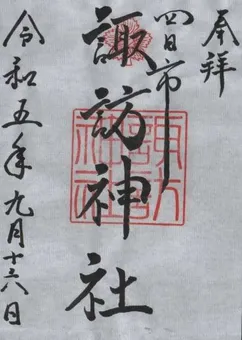 奉拝
四日市
諏訪神社
諏訪
神社
令和五年九月十六日